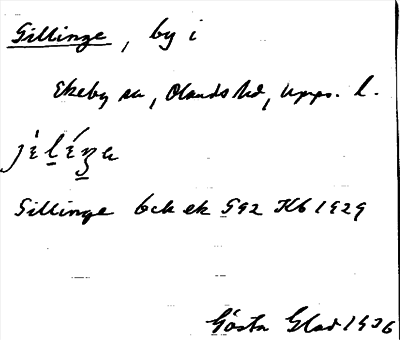 Gillinge, by i
Ekeby sn, Olands hd, Upps. l.
Gillinge bck ek 592 Kb 1929
Gösta Glad 1936